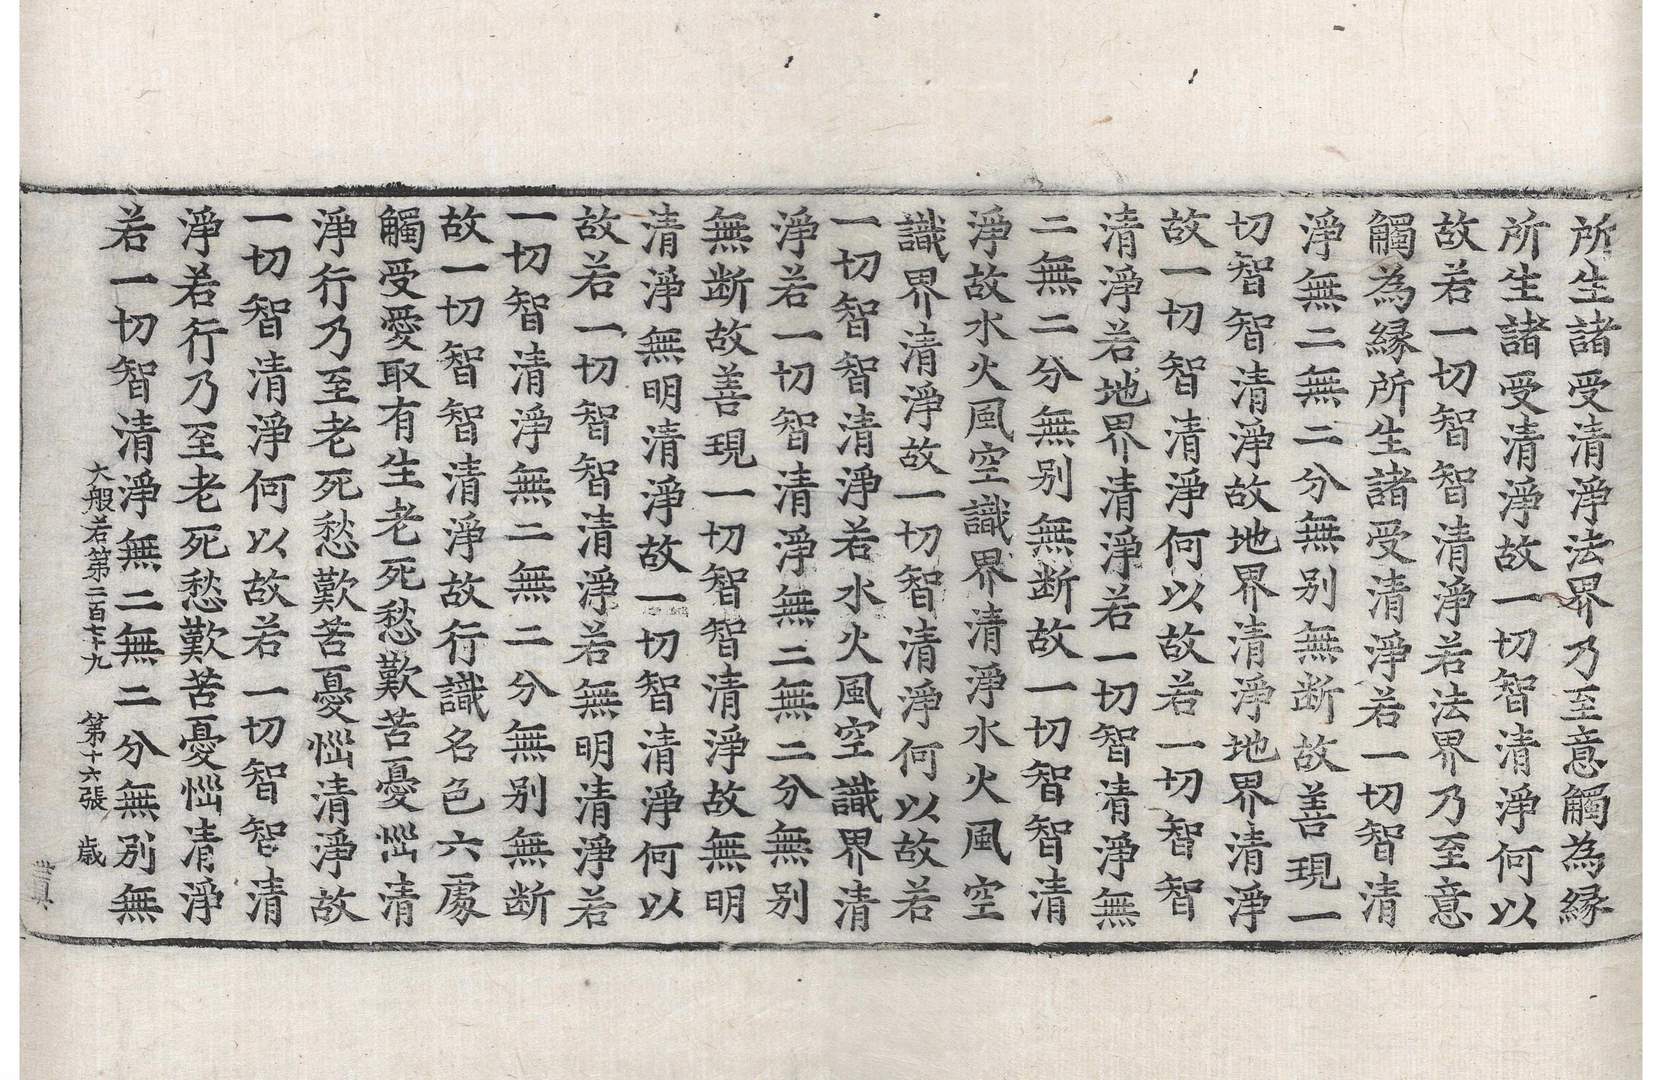 所生諸受清淨法界乃至意觸為縁
所生諸受清淨故一切智清淨何以
故若一切智智清淨若法界乃至意
觸為縁所生諸受清淨若一切智清
淨無二無二分無别無断故善現一
切智智清淨故地界清淨地界清淨
故一切智清淨何以故若一切智智
清淨若地界清淨若一切智清淨無
二無二分無别無断故一切智智清
淨故水火風空識界清淨水火風空
識界清淨故一切智清淨何以故若
一切智智清淨若水火風空識界清
淨若一切智清淨無二無二分無别
無断故善現一切智智清淨故無明
清淨無明清淨故一切智清淨何以
故若一切智智清淨若無明清淨若
一切智清淨無二無二分無别無断
故一切智智清淨故行識名色六處
觸受愛取有生老死愁歎苦憂惱清
淨行乃至老死愁歎苦憂惱清淨故
一切智清淨何以故若一切智智清
淨若行乃至老死愁歎苦憂惱清淨
若一切智清淨無二無二分無別無
大般若第二百七十九 第十六張 歲